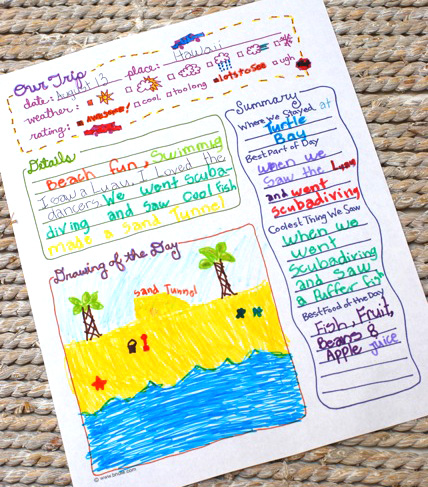 Our Trip
date: August 13 place: Hawaii
weather:
rating: awesome! cool toolong lotstosee ugh
Details
Beach fun, Swimmig
I saw a Luau, I Loved the
dancers. We went Scuba-
diving and Saw Cool Fish
made a Sand Tunnel
Drawing of the Day
Sand Tunnel
Summary
Where We Stayed at
Turtle
Bay
Best Part of Day
when we
saw the Luau
and went
scubadiving
Coolest Thing We Saw
When we
went
scubadiving
and saw
a Puffer Fish
Best Food of the Day
Fish, Fruit,
Beans &
Apple juice